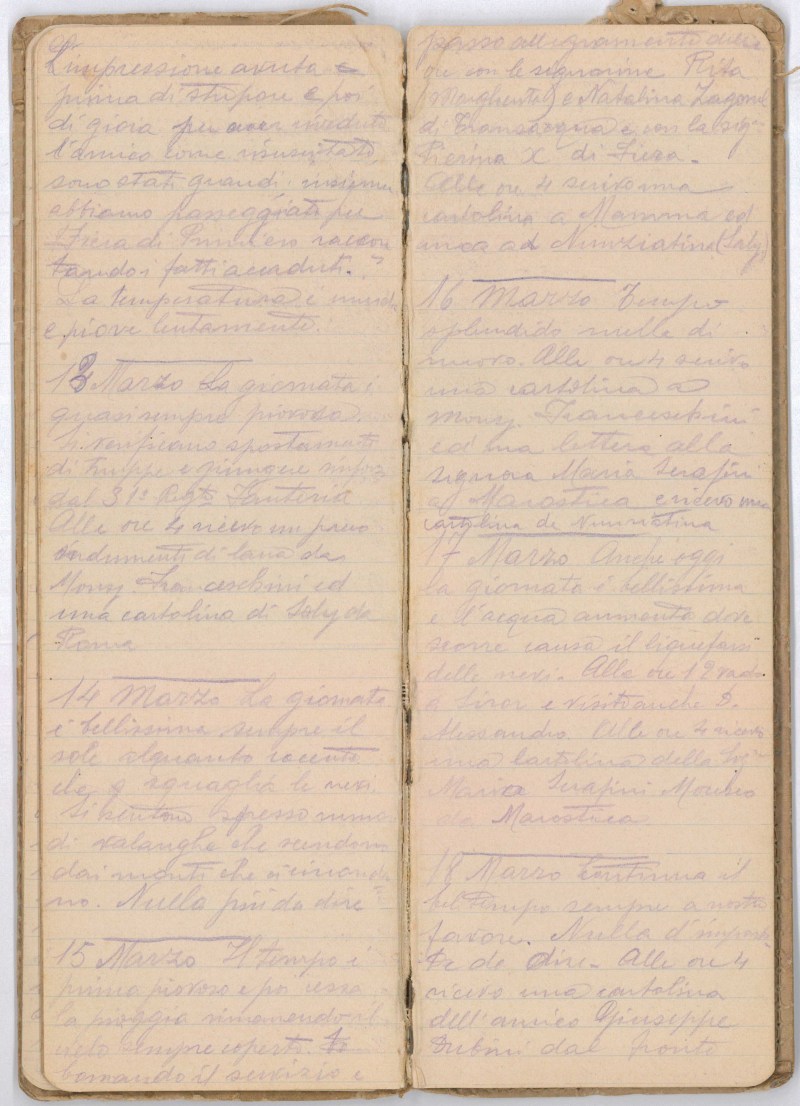 L'impressione avuta e
prima di stupore e poi
di gioia per aver riveduto
l'amico come risuscitato
sono stati quandi insieme
abbiamo passeggiato per
Fiera di Primiero raccon
tandoci fatti accaduti.
La temperatura è umida
e piove lentamente.
13 Marzo La giornata è
quasi sempre piovosa.
Si verificano spostamenti
di truppe e giungere rinforzi
dal 31° Regto Fanteria
Alle ore 4 ricevo un pacco
indumenti di lana da
Mons. Franceschini ed
una cartolina di Saly da
Roma
14 Marzo La giornata
è bellissima sempre il
sole alquanto cocente
che squaglia le nevi.
Si sentono spesso rumori
di valanghe che scendono
dai monti che ci circonda
no. Nulla più da dire
15 Marzo Il tempo è
prima piovoso e poi cessa
la pioggia rimanendo il
cielo sempre coperto. To
bomando il servizio e
passo allegramente delle
ore con le signorine Rita
Margherita e Natalina Zagonel
di Transacqua e con la sigª
Pierina X di Fiera.
Alle ore 4 scrivo una
cartolina a Mamma ed
unca ad Nunziatina (Saly)
16 Marzo Tempo
splendido nulla di
nuovo. Alle ore 4 scrivo
una cartolina a
Mons. Franceschini
ed una lettera alla
signora Maria Serafini
a Marostica e ricevo una
cartolina de Nunziatina
17 Marzo Anche oggi
la giornata è bellissima
e l'acqua aumenta dove
scorre causa il liquefarsi
delle nevi. Alle ore 12 vado
a Siror e visito anche D.
Alessandro. Alle ore 4 ricevo
una cartolina della Sigª
Maria Serafini
da Marostica
18 Marzo Continua il
bel tempo sempre a nostro
favore. Nulla d'importan
te da dire. Alle ore 4
ricevo una cartolina
dell'amico Giuseppe
Trebini dal fronte